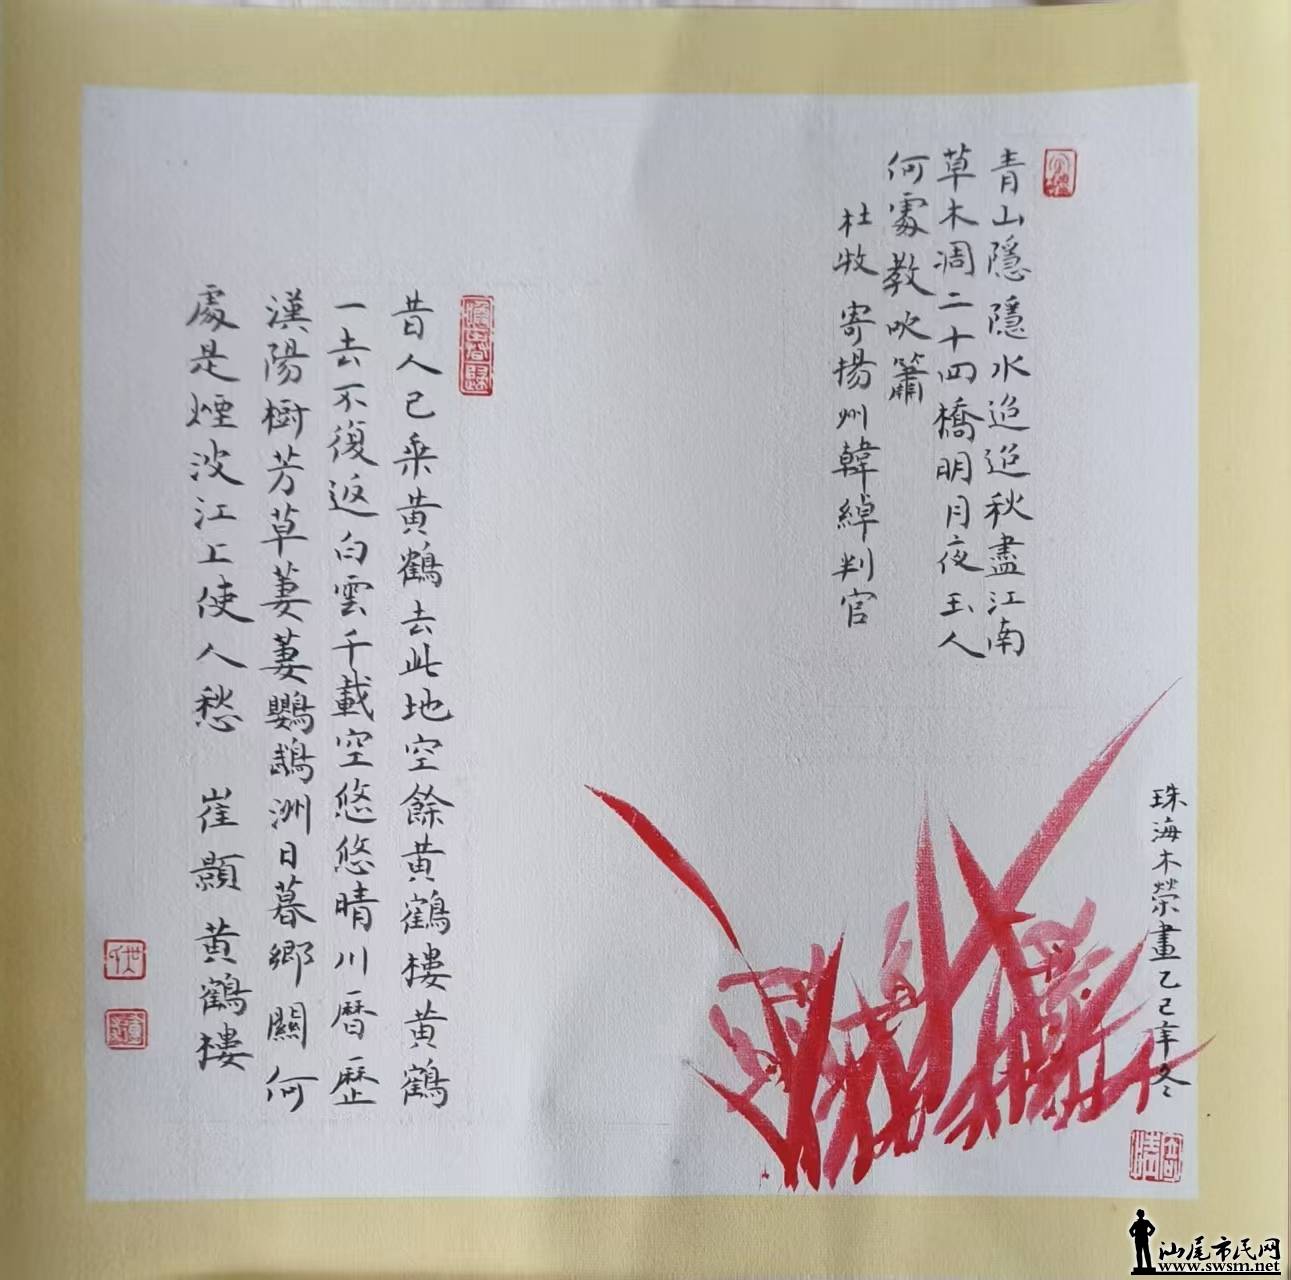 青山隱隱水迢迢秋盡江南
草木凋二十四橋明月夜玉人
何處教吹簫
杜牧 寄揚州韓綽判官
昔人已乘黄鶴去此地空餘黄鶴樓黄鶴
一去不復返白雲千載空悠悠晴川曆歷
漢陽樹芳草萋萋鸚鵡洲日暮鄉關何
處是煙波江上使人愁 崔顥 黄鶴樓
珠海木榮畫乙巳年冬
汕尾市民网
www.swsm.net